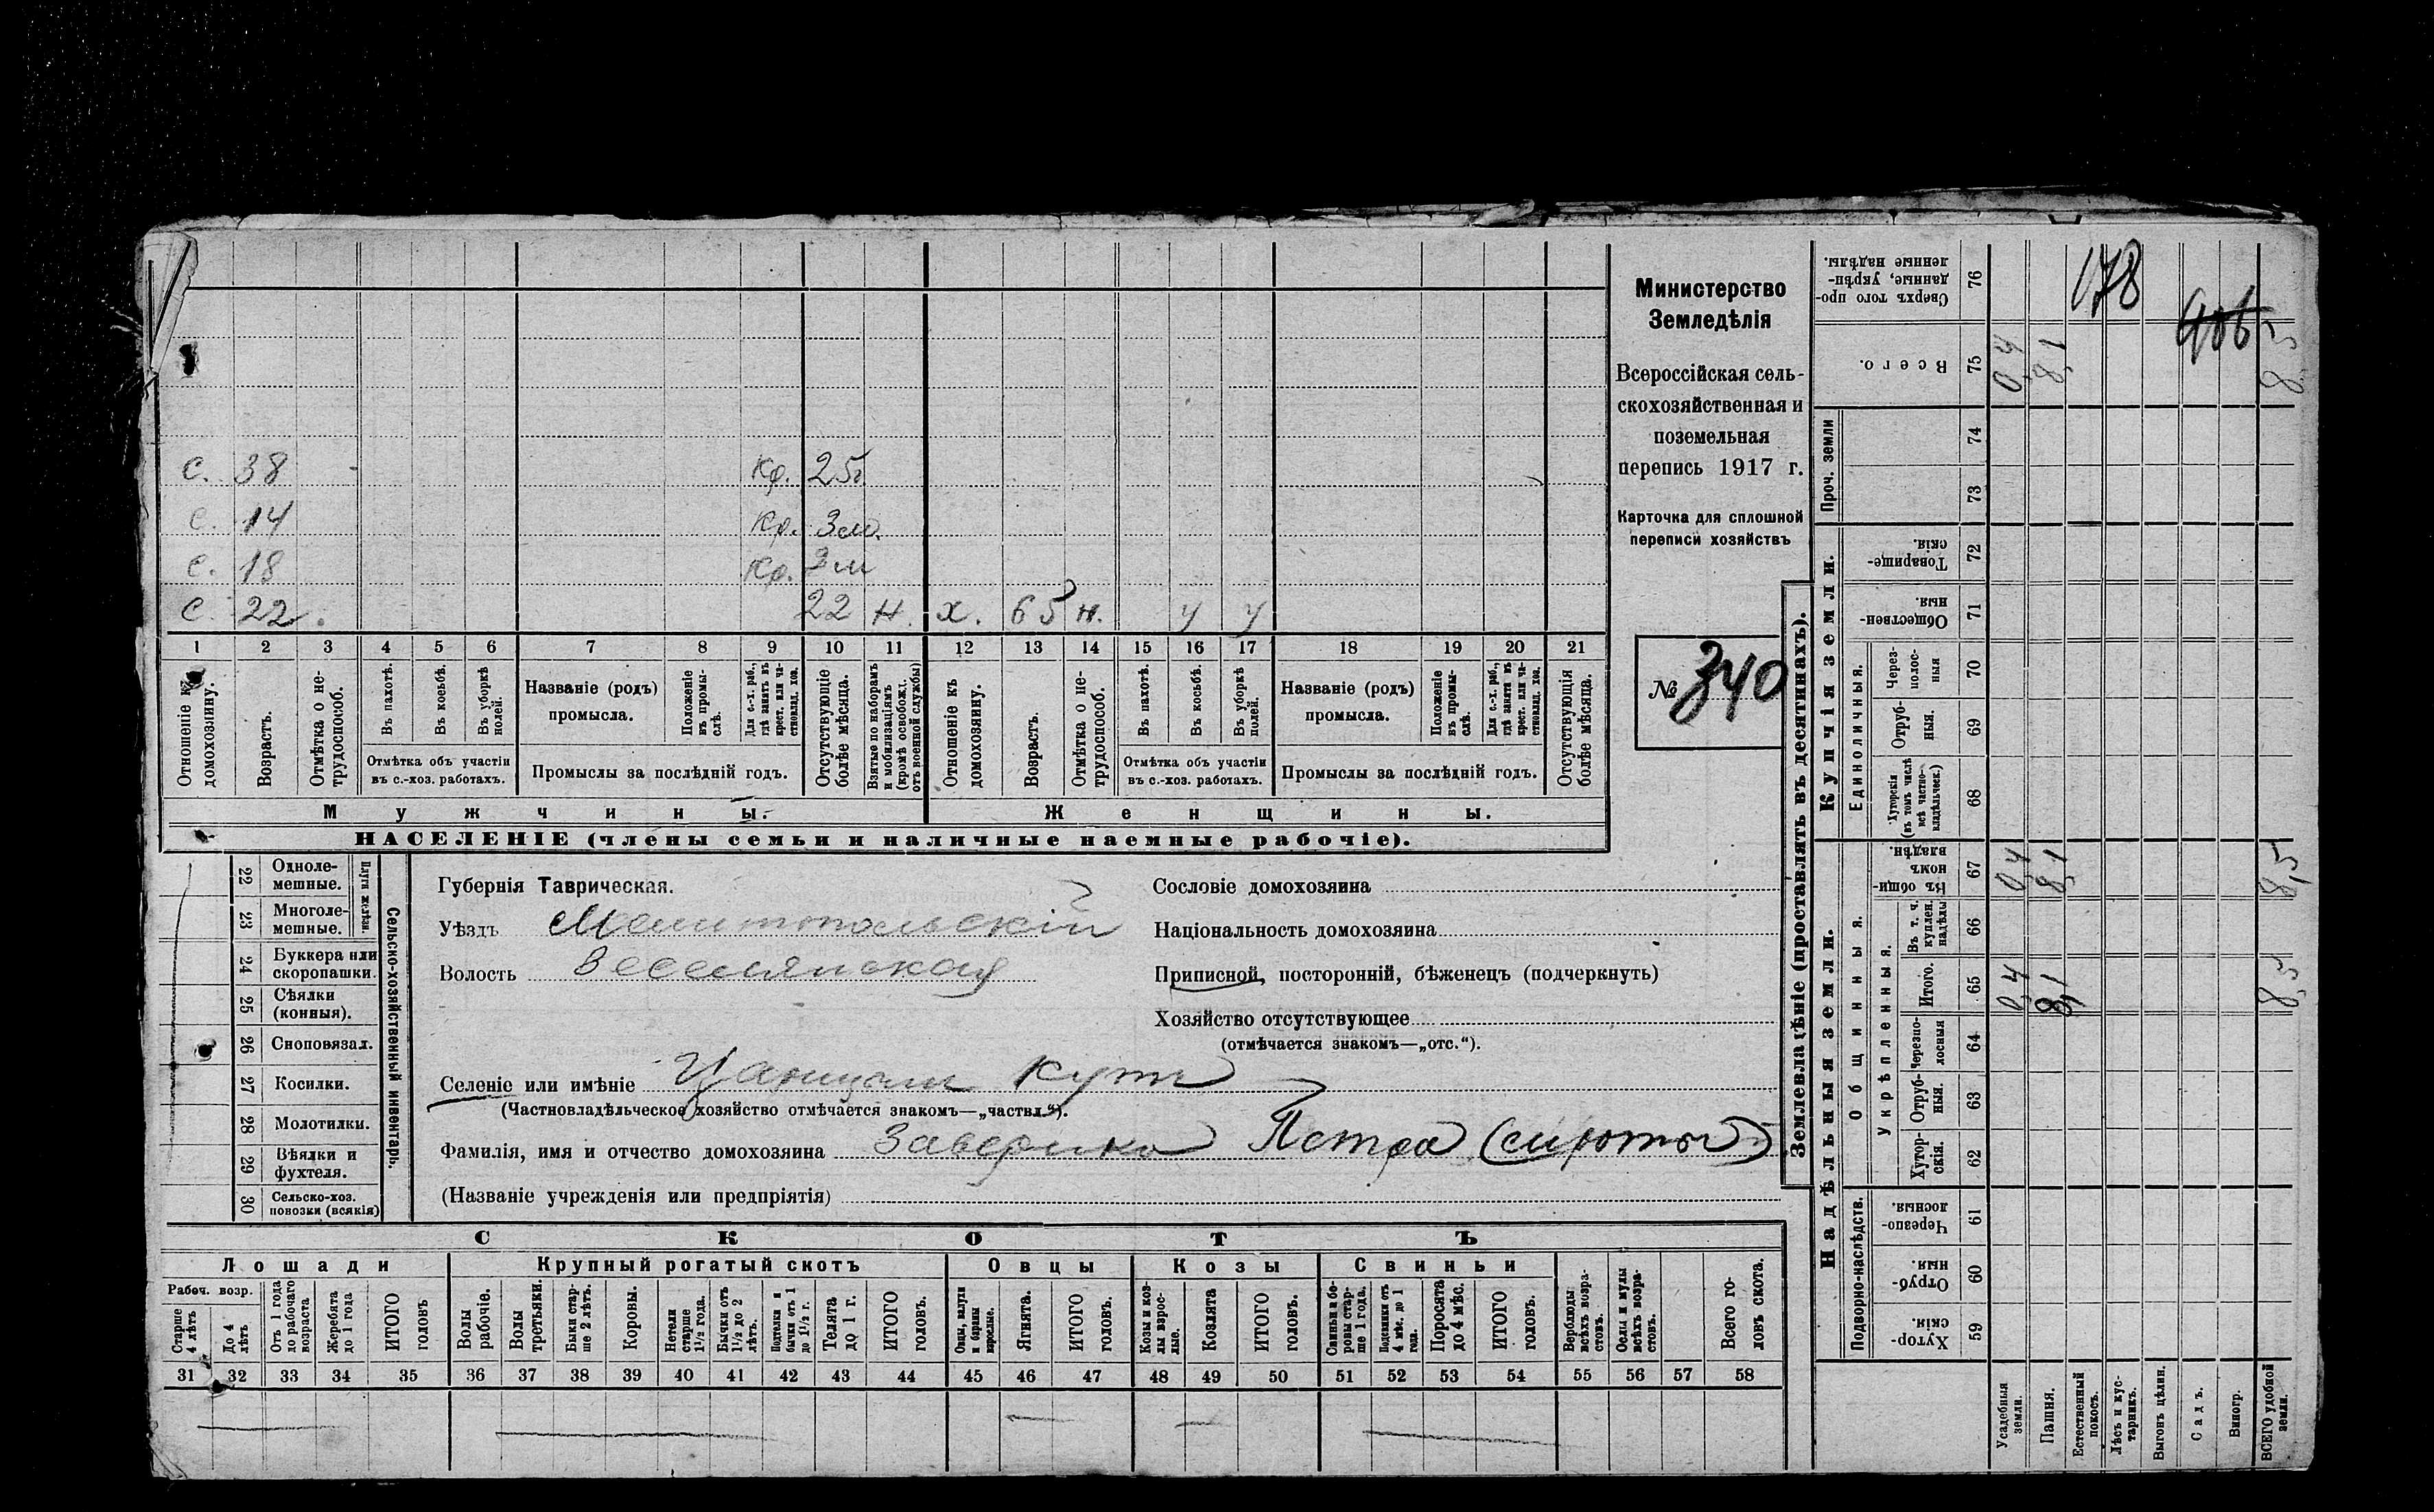 с. 38 Кр. 25г.
с. 14 Кр. 3м.
с. 18 Кр. 3м
с. 22. 22 н. х. 65 н. у у
1 2 3 4 5 6 7 8 9 10 11 12 13 14 15 16 17 18 19 20 21
Отношеніе къ домохозяину.
Возрастъ.
Отмѣтка о не-трудоспособ.
Въ пахотѣ.
Въ косьбѣ.
Въ уборкѣ полей.
Отмѣтка объ участіи
въ с.-хоз. работахъ.
Названіе (родъ)
промысла.
Положеніе въ промы-слѣ.
Для с.-х. раб., гдѣ занятъ въ крест. или ча-стновлад. хоз.
Промыслы за послѣдній годъ.
Отсутствующіе болѣе мѣсяца.
Взятые по наборамъ и мобилизаціямъ (кромѣ освобожд. отъ военной службы)
Отношеніе къ домохозяину.
Возрастъ.
Отмѣтка о не-трудоспособ.
Въ пахотѣ.
Въ косьбѣ.
Въ уборкѣ полей.
Отмѣтка объ участіи
въ с.-хоз. работахъ.
Названіе (родъ)
промысла.
Положеніе въ промы-слѣ.
Для с.-х. раб., гдѣ заняти въ крест. или ча-стновлад. хоз.
Промыслы за послѣдній годъ.
Отсутствующія болѣе мѣсяца.
Мужчины.
Женщины.
НАСЕЛЕНІЕ (члены семьи и наличные наемные рабочіе).
Министерство
Земледѣлія
Всероссійская сель-
скохозяйственная и
поземельная
перепись 1917 г.
Карточка для сплошной
переписи хозяйствъ
№ 340
22 Одноле-мешные.
23 Многоле-мешные.
24 Буккера или скоропашки.
25 Сѣялки (конныя).
26 Сноповязал.
27 Косилки.
28 Молотилки.
29 Вѣялки и фухтеля.
30 Сельско-хоз. повозки (всякія)
Плуги желѣзн.
Сельско-хозяйственный инвентарь.
Губернія Таврическая.
Уѣздъ Мелитопольскій
Волость Веселянская
Сословіе домохозяина
Національность домохозяина
Приписной, посторонній, бѣженецъ (подчеркнуть)
Хозяйство отсутствующее
(отмѣчается знакомъ—„отс.“).
Селеніе или имѣніе Цанцынъ Кутъ
(Частновладѣльческое хозяйство отмѣчается знакомъ—„частвл.“).
Фамилія, имя и отчество домохозяина Заверико Петра (сироты)
(Названіе учрежденія или предпріятія)
СКОТЪ
Лошади
Крупный рогатый скотъ
Овцы
Козы
Свиньи
Рабоч. возр.
Старше 4 лѣтъ
До 4 лѣтъ
Отъ 1 года до рабочаго возраста
Жеребята до 1 года
ИТОГО головъ
Волы рабочіе.
Волы третьяки.
Быки стар-ше 2 лѣтъ.
Коровы.
Нетели старше 1½ года.
Бычки отъ 1½ до 2 лѣтъ.
Подтелки и бычки отъ 1 до 1½ г.
Телята до 1 г.
ИТОГО головъ.
Овцы, валухи и бараны взрослые.
Ягнята.
ИТОГО головъ.
Козы и коз-лы взрос-лые.
Козлята
ИТОГО головъ.
Свиньи и бо-ровы стар-ше 1 года.
Подсвинки отъ 4 мѣс. до 1 года.
Поросята до 4 мѣс.
ИТОГО головъ.
Верблюды всѣхъ возра-стовъ.
Ослы и мулы всѣхъ возра-стовъ.
Всего го-ловъ скота.
31 32 33 34 35 36 37 38 39 40 41 42 43 44 45 46 47 48 49 50 51 52 53 54 55 56 57 58
Землевладѣніе (проставлять въ десятинахъ).
178
406
Сверхъ того про-данные, укрѣп-ленные надѣлы. 76
Всего. 75 0,4 8,1 8,5
Проч. земли
74
73
Купчія земли.
Товарище-скія. 72
Обществен-ныя. 71
Единоличныя.
Через-полос-ныя 70
Отруб-ныя. 69
Хуторскія (въ томъ числѣ всѣ частно-владѣльческ.) 68
Надѣльныя земли.
Общинныя.
Въ общи-номъ владѣн. 67 0,4 8,1 8,5
Укрѣпленныя.
Въ т. ч. куплен. надѣлы 66
Итого. 65 0,4 8,1 8,5
Черезпо-лосныя 64
Отруб-ныя. 63
Хутор-скія. 62
Подворно-наслѣдств.
Черезпо-лосныя. 61
Отруб-ныя. 60
Хутор-скія. 59
Усадебныя земли.
Пашня.
Естественный покосъ.
Лѣсъ и кус-тарникъ.
Выгонъ цѣлин.
Садъ.
Виногр.
ВСЕГО удобной земли.